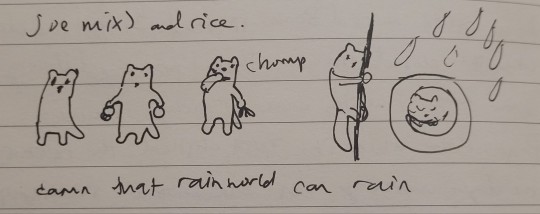 mix) and rice.
chomp
damn that rainworld can rain